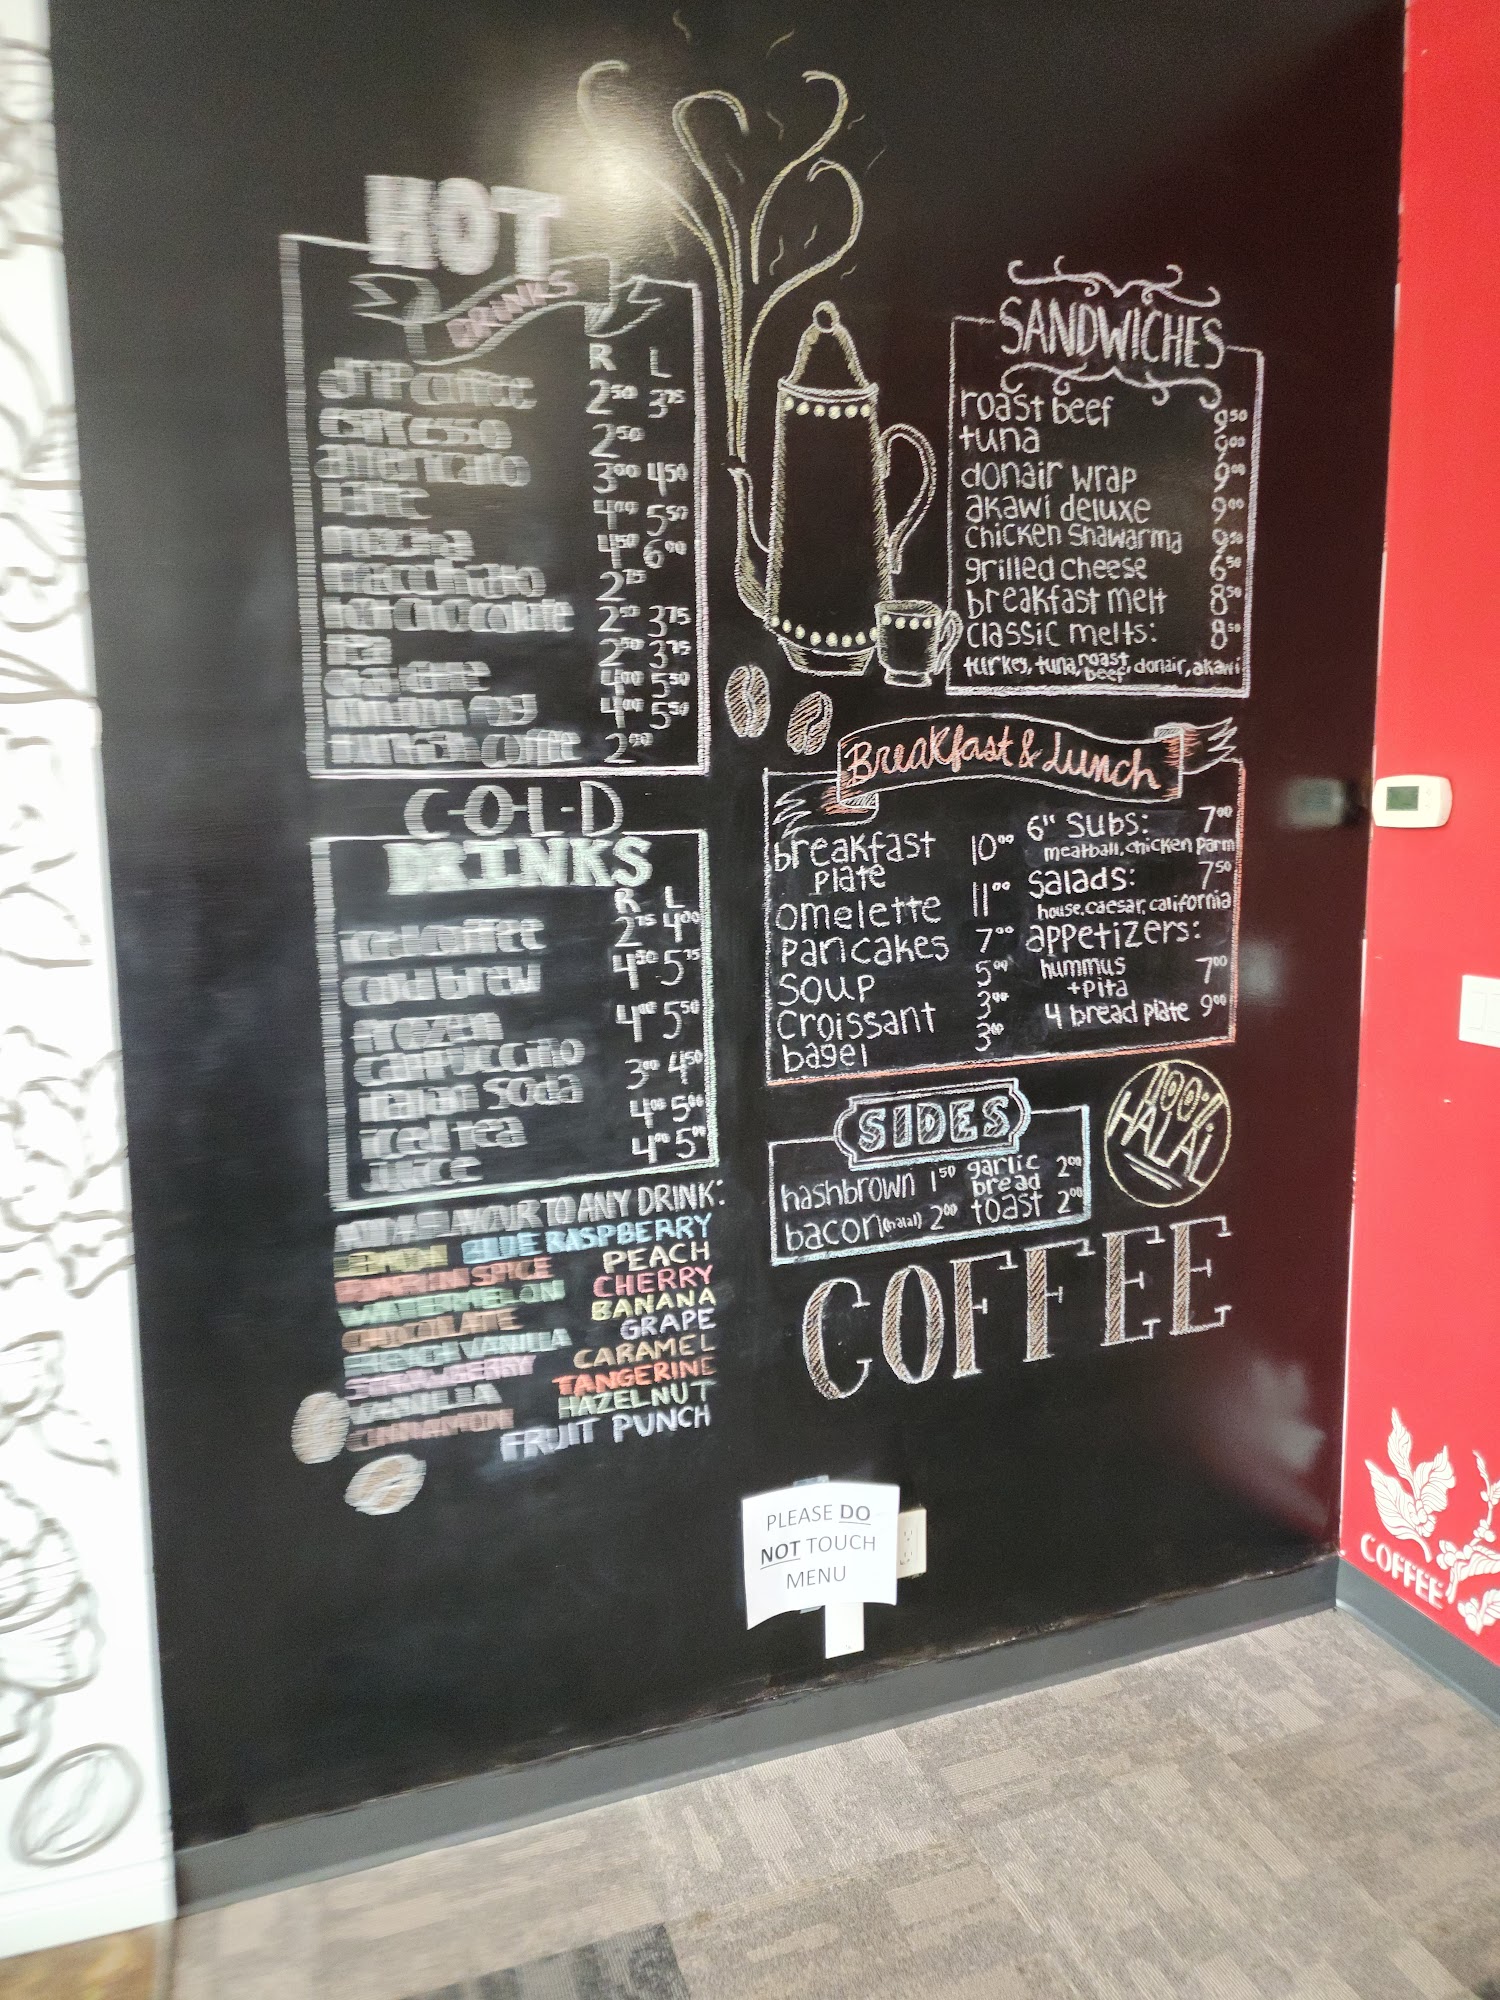 HOT
DRINKS
R L
drip coffee 2.50 3.75
espresso 2.50
americano 3.00 4.50
latte 4.00 5.50
mocha 4.50 6.00
macchiato 2.75
hot chocolate 2.50 3.75
tea 2.50 3.75
4.00 5.50
4.00 5.50
turkish coffee 2.90
C-O-L-D
DRINKS
R L
iced coffee 2.75 4.00
cold brew 4.50 5.75
frozen
cappuccino 4.00 5.50
italian soda 3.00 4.50
iced tea 4.00 5.00
juice 4.00 5.00
ADD A FLAVOUR TO ANY DRINK:
LEMON BLUE RASPBERRY
PUMPKIN SPICE PEACH
WATERMELON CHERRY
CHOCOLATE BANANA
FRENCH VANILLA GRAPE
STRAWBERRY CARAMEL
VANILLA TANGERINE
CINNAMON HAZELNUT
FRUIT PUNCH
SANDWICHES
roast beef 9.50
tuna 9.00
donair wrap 9.00
akawi deluxe 9.00
chicken shawarma 9.50
grilled cheese 6.50
breakfast melt 8.50
classic melts: 8.50
turkey, tuna, roast beef, donair, akawi
Breakfast & Lunch
breakfast plate 10.00
omelette 11.00
pancakes 7.00
soup 5.00
croissant 3.00
bagel 3.00
6" subs: 7.00
meatball, chicken parm
salads: 7.50
house, caesar, california
appetizers:
hummus
+pita 7.00
4 bread plate 9.00
SIDES
hashbrown 1.50 garlic bread 2.00
bacon (halal) 2.00 toast 2.00
100%
HALAL
COFFEE
PLEASE DO
NOT TOUCH
MENU
COFFEE